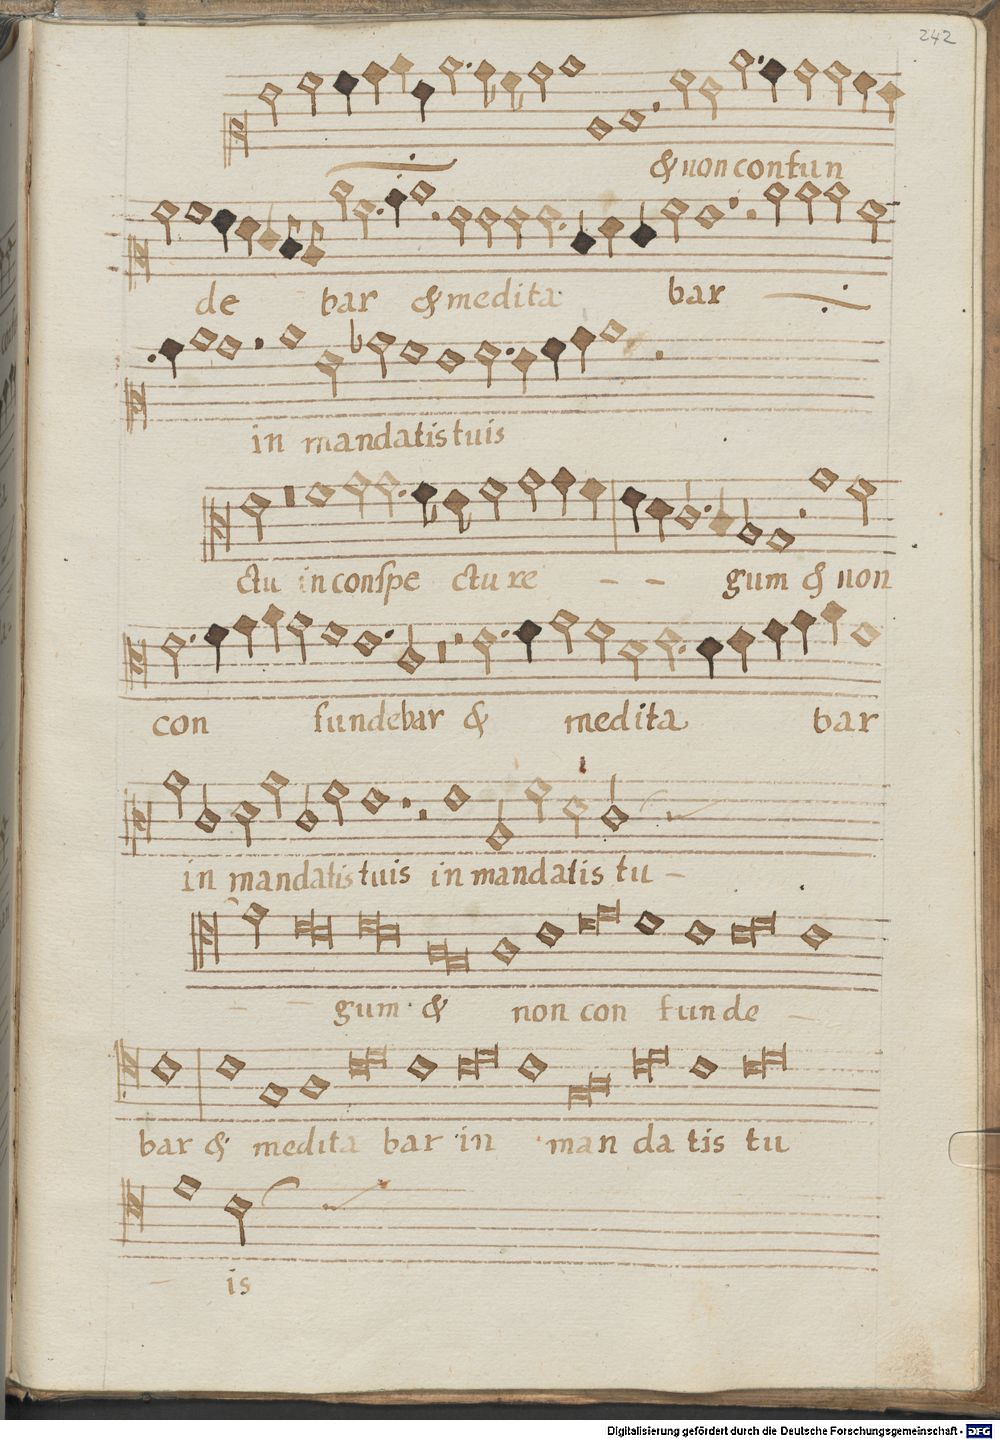 242
& non confun
de bar & medita bar
in mandatis tuis
ctu in conspe ctu re - - gum & non
con fundebar & medita bar
in mandatis tuis in mandatis tu -
- - gum & non con funde -
bar & medita bar in man da tis tu
- is
Digitalisierung gefördert durch die Deutsche Forschungsgemeinschaft - DFG